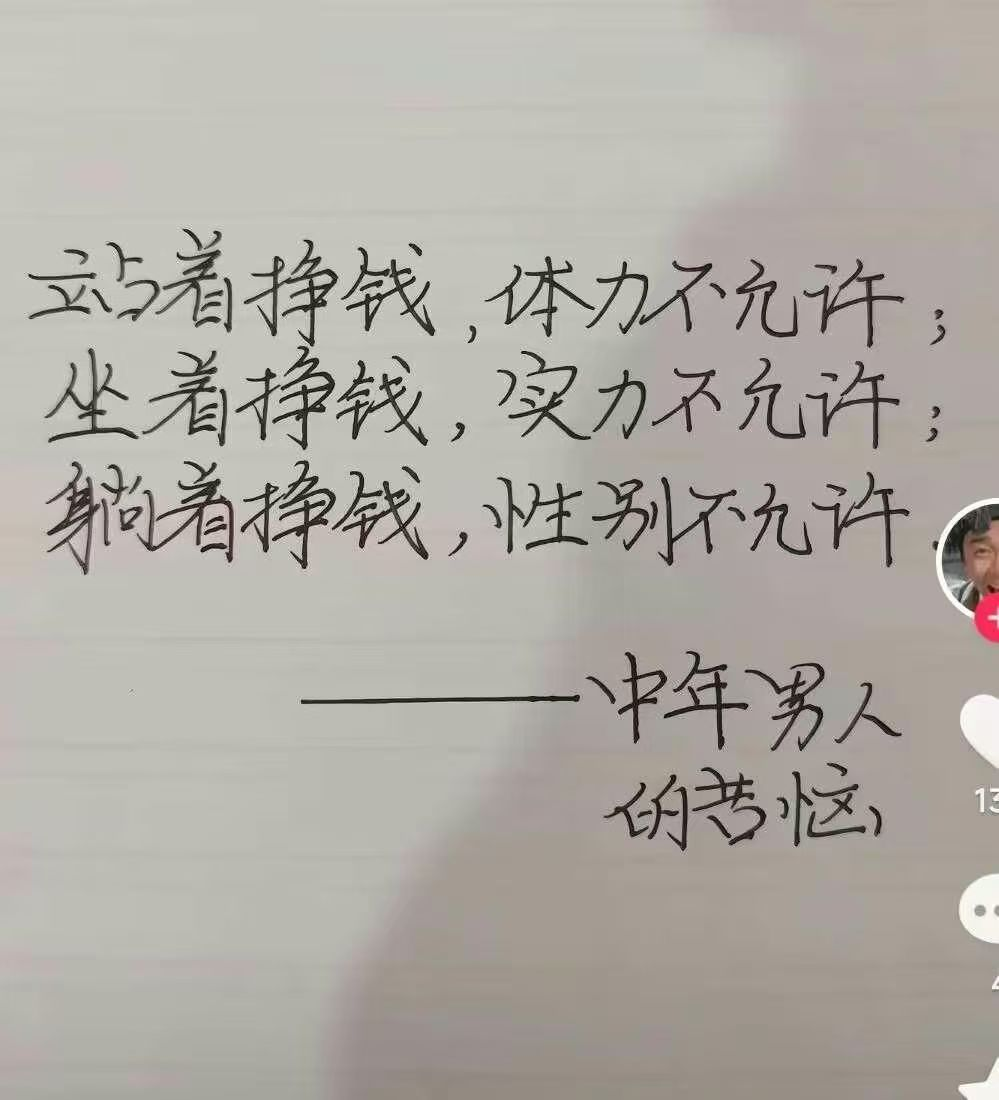 站着挣钱,体力不允许;
坐着挣钱,实力不允许;
躺着挣钱,性别不允许.
——中年男人
的苦恼
13
4